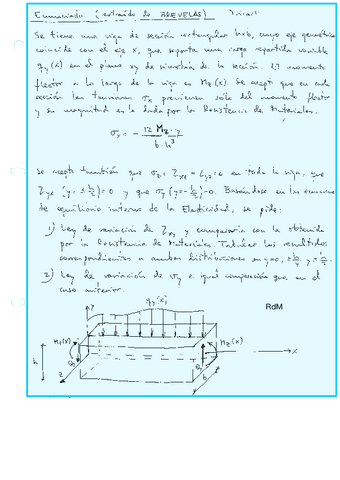 Enunciado (extraído de BREVELAS)
Se tiene una viga de sección rectangular bxh, cuyo eje geométrico
coincide con el eje x, que soporta una carga repartida variable
qy(x) en el plano xy de simetría de la sección. El momento
flector a lo largo de la viga es Mz(x). Se acepta que en cada
sección las tensiones σx provienen sólo del momento flector
y su magnitud es la dada por la Resistencia de Materiales.
σx = - 12 Mz·y / b·h³
Se acepta también que σz = τxz = τyz = 0 en toda la viga, que
τyx (y=±h/2)=0 y que σy (y=-h/2)=0. Basándose en las ecuaciones
de equilibrio interno de la Elasticidad, se pide:
1) Ley de variación de τxy y compararla con la obtenida
por la Resistencia de Materiales. Tabular los resultados
correspondientes a ambas distribuciones en y=0, ±h/4 y ±h/2.
2) Ley de variación de σy e igual comparación que en el
caso anterior.
qy(x)
RdM
y
Mz(x)
Mz(x)
x
h
z
b